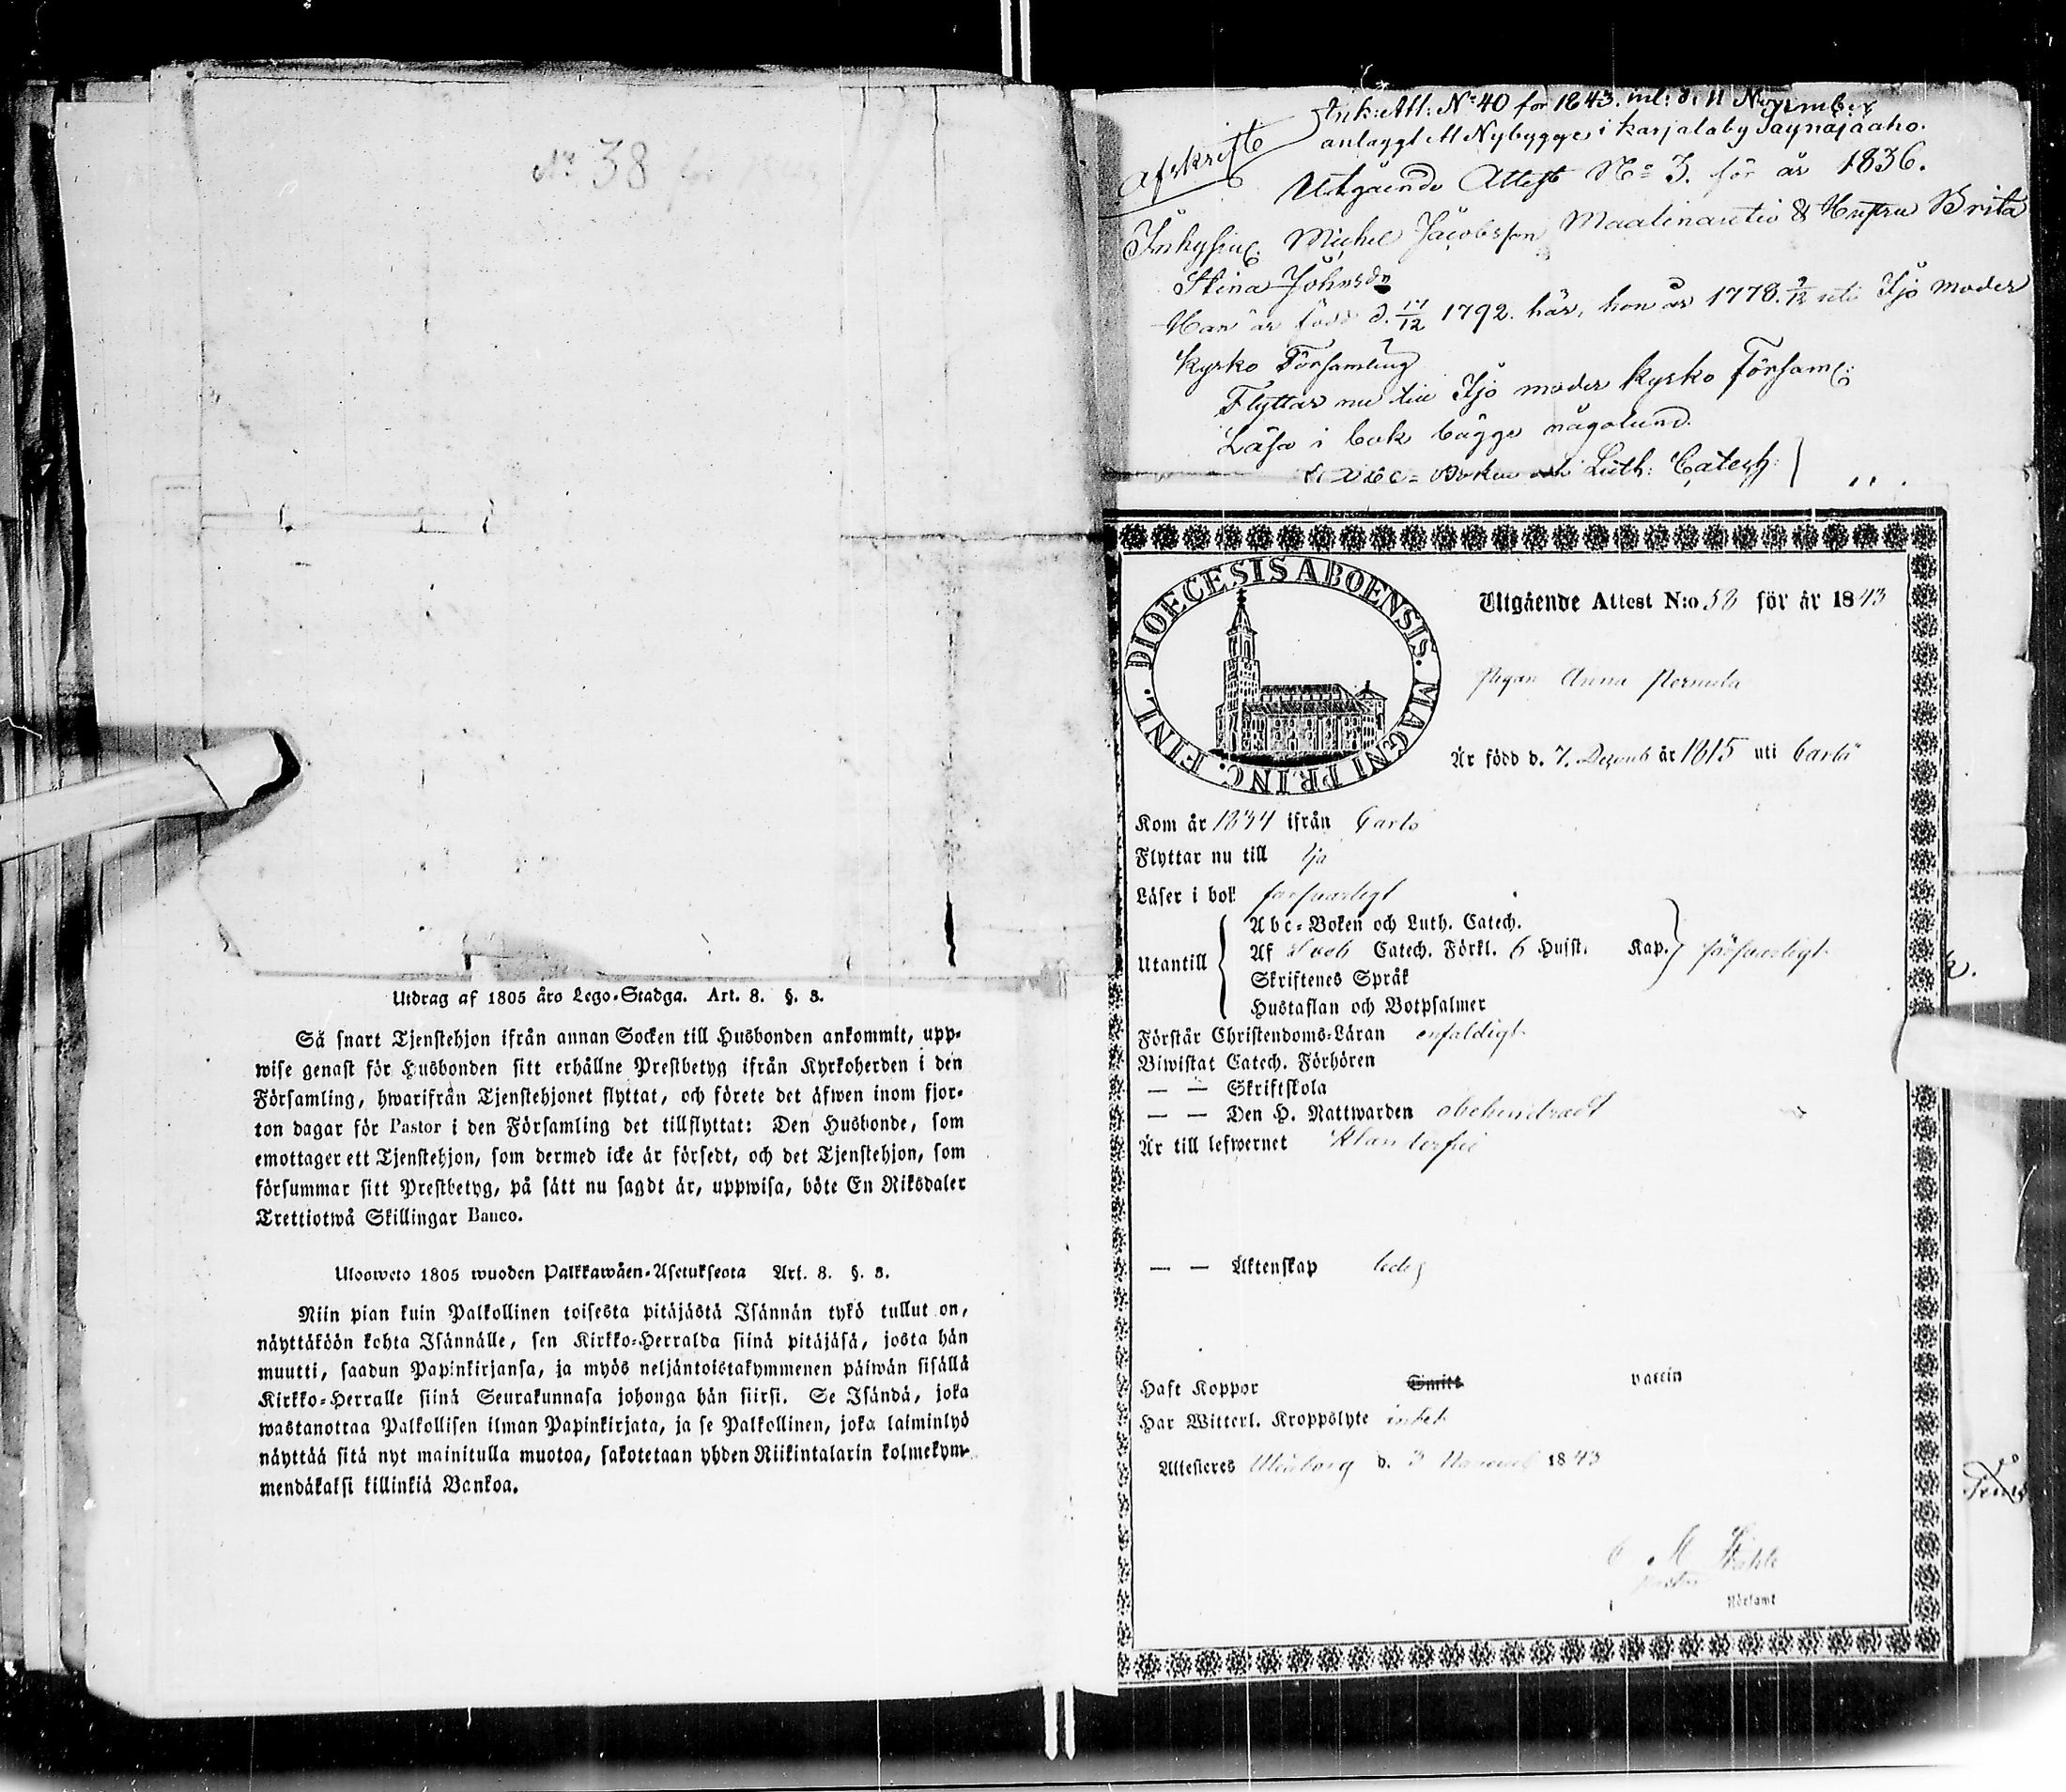 No 38 för
Utdrag af 1805 års Lego-Stadga. Art. 8. §. 8.
Så snart Tjenstehjon ifrån annan Socken till Husbonden ankommit, upp-
wise genast för Husbonden sitt erhållne Prestbetyg ifrån Kyrkoherden i den
Församling, hwarifrån Tjenstehjonet flyttat, och förete det äfwen inom fjor-
ton dagar för Pastor i den Församling det tillflyttat: Den Husbonde, som
emottager ett Tjenstehjon, som dermed icke är försedt, och det Tjenstehjon, som
försummar sitt Prestbetyg, på sätt nu sagdt är, uppwisa, böte En Riksdaler
Trettiotwå Skillingar Banco.
Ulosweto 1805 wuoden Palkkawäen-Asetuksesta Art. 8. §. 8.
Niin pian kuin Palkollinen toisesta pitäjästä Isännän tykö tullut on,
näyttäköön kohta Isännälle, sen Kirkko-Herralda siinä pitäjäsä, josta hän
muutti, saadun Papinkirjansa, ja myös neljäntoistakymmenen päiwän sisällä
Kirkko-Herralle siinä Seurakunnasa johonga hän siirsi. Se Isändä, joka
wastanottaa Palkollisen ilman Papinkirjata, ja se Palkollinen, joka laiminlyö
näyttää sitä nyt mainitulla muotoa, sakotetaan yhden Riikintalarin kolmekym-
mendäkaksi killinkiä Bankoa.
Ink: Att: No 40 för 1843. inl: d. 11 November
anlaggt M Nybygge i Karjalaby Säynäjäaho.
Afskrift
Utgående Attest No 3. för år 1836.
Inhysing: Michel Jacobsson Maalinaretio & Hustru Brita
Stina Johnsdr
Han är född d. 17/12 1792. här, hon år 1778. 9/12 uti Ijo moder
Kyrko Församling
Flyttar nu till Ijo moder Kyrko Församl:
Läsa i bok bägge någolund.
Abc-Boken och Luth: Catech: }
DIOECESIS ABOENSIS. MAGNI PRINC. FINL.
Utgående Attest N:o 58 för år 1843
Pigan Anna
Är född d. 7. Dezemb år 1815 uti Carlö
Kom år 1834 ifrån Carlö
Flyttar nu till Ijo
Läser i bok försvarligt
Utantill { Abc-Boken och Luth. Catech.
Af Sveb Catech. Förkl. 6 Hufst. Kap. } försvarligt
Skriftenes Språk
Hustaflan och Botpsalmer
Förstår Christendoms-Läran enfaldigt
Biwistat Catech. Förhören
— — Skriftskola
— — Den H. Nattwarden obehindradt
Är till lefwernet klanderfri
— — Äktenskap ledig
Haft Koppor vaccin
Har Witterl. Kroppslyte intet
Attesteres Uleåborg d. 3 Novemb 1843
M Ståhle
Pastor